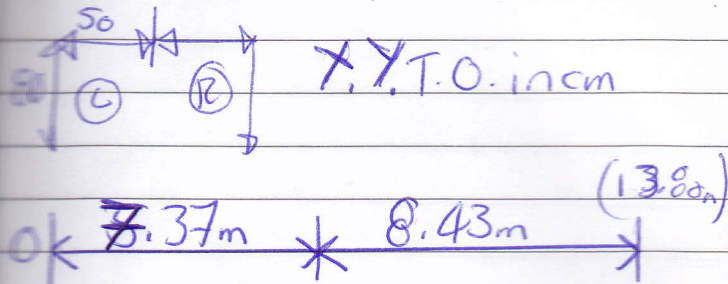 50
80 L R X.Y.T.O. in cm
(13.80m)
0 7.37m 8.43m